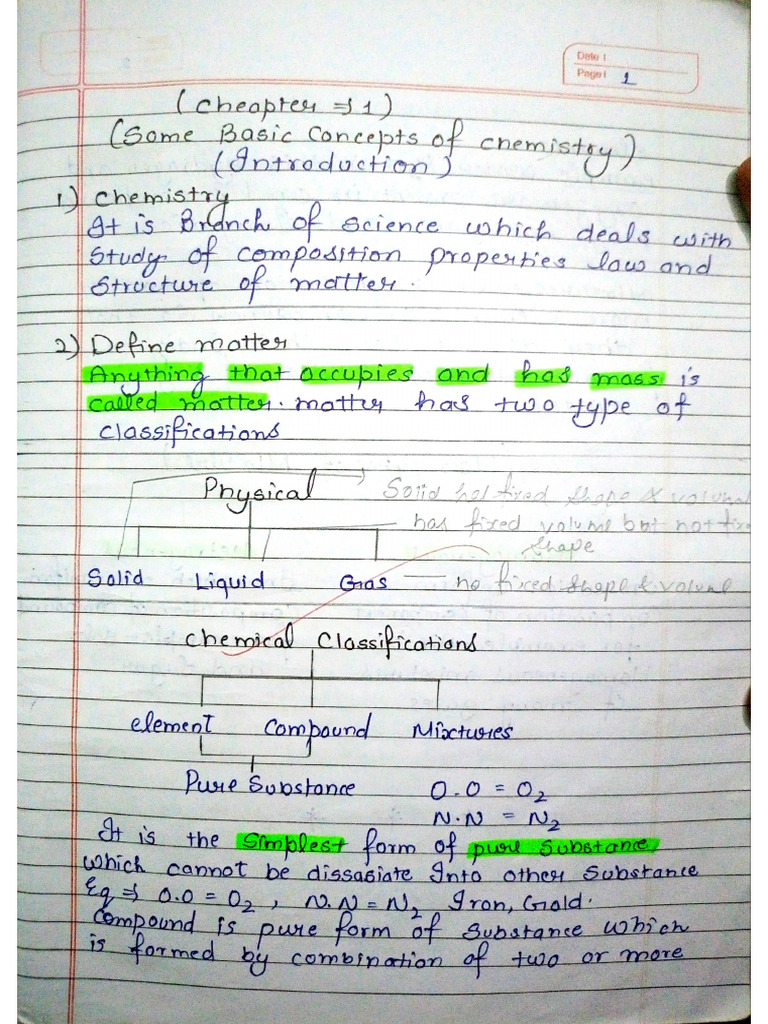 Date :
Page : 1
(Cheapter ⇒ 1)
(Some Basic Concepts of chemistry)
(Introduction)
1) Chemistry
It is Branch of science which deals with
Study of composition properties law and
Structure of matter.
2) Define matter
Anything that accupies and has mass is
called matter. matter has two type of
Classifications
Physical
Solid has fixed shape & volume
has fixed volume but not fixed
shape
Solid Liquid Gas no fixed shape & volume
Chemical Classifications
element Compound Mixtures
Pure Substance O.O = O2
N.N = N2
It is the Simplest form of pure Substance
which cannot be dissasiate Into other Substance
Eg ⇒ O.O = O2, N.N = N2 Iron, Gold.
Compound is pure form of substance which
is formed by combination of two or more